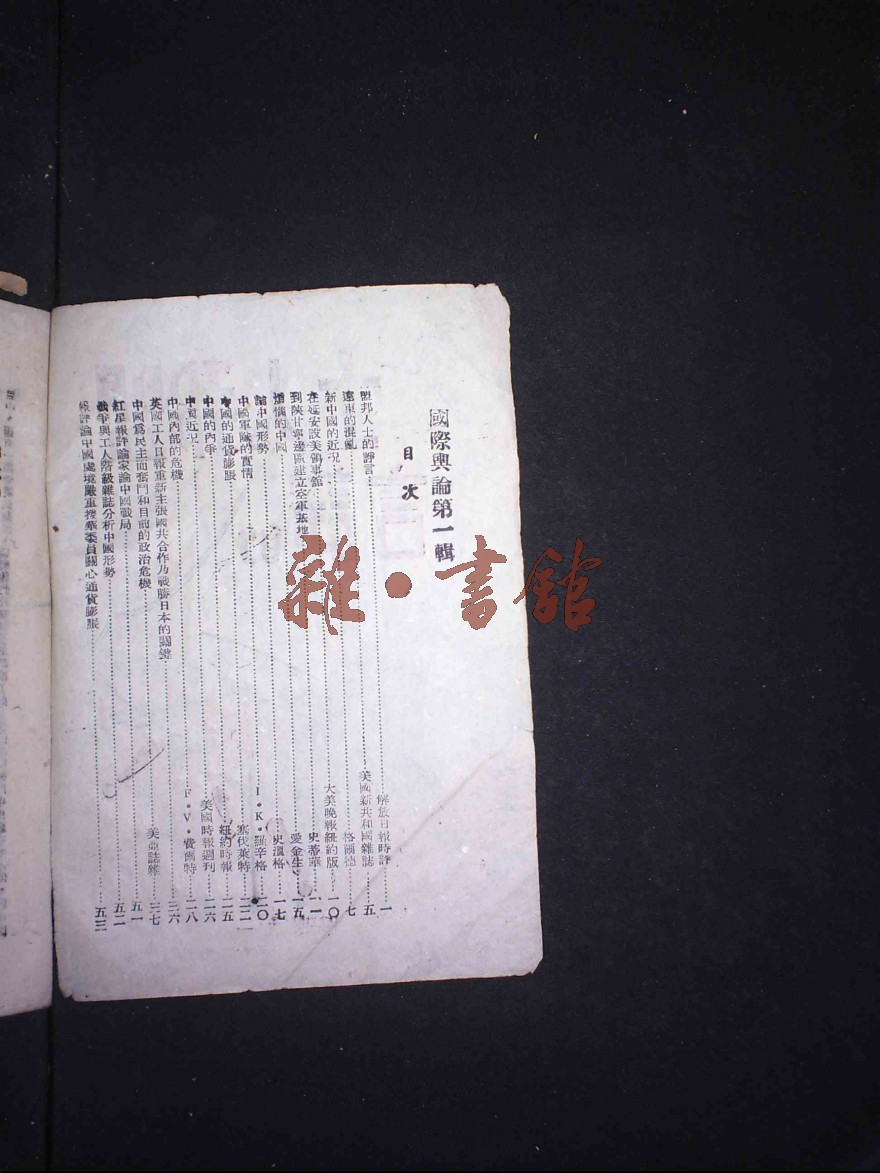 國際輿論第一輯
目次
盟邦人士的諍言……解放日報時評……一
遠東的混亂……美國新共和國雜誌……五
新中國的近況……格爾德……七
在延安設美領事館……大美晚報紐約版……一〇
到陝甘寧邊區建立空軍基地……史蒂華……一一
煩惱的中國……愛金生……一五
論中國形勢……史滇格……一七
中國軍隊的實情……I·K·羅辛格……二〇
中國的通貨膨脹……塞伐萊特……二二
中國的內爭……紐約時報……二五
中國近況……美國時報週刊……二六
中國內部的危機……F·V·費爾特……二八
英國工人日報重新主張國共合作乃戰勝日本的關鍵……三六
中國爲民主而奮鬥和目前的政治危機……美亞誌雜……三七
紅星報評論家論中國戰局……五一
戰爭與工人階級雜誌分析中國形勢……五二
報評論中國處境嚴重援華委員關心通貨膨脹……五三
雜·書館